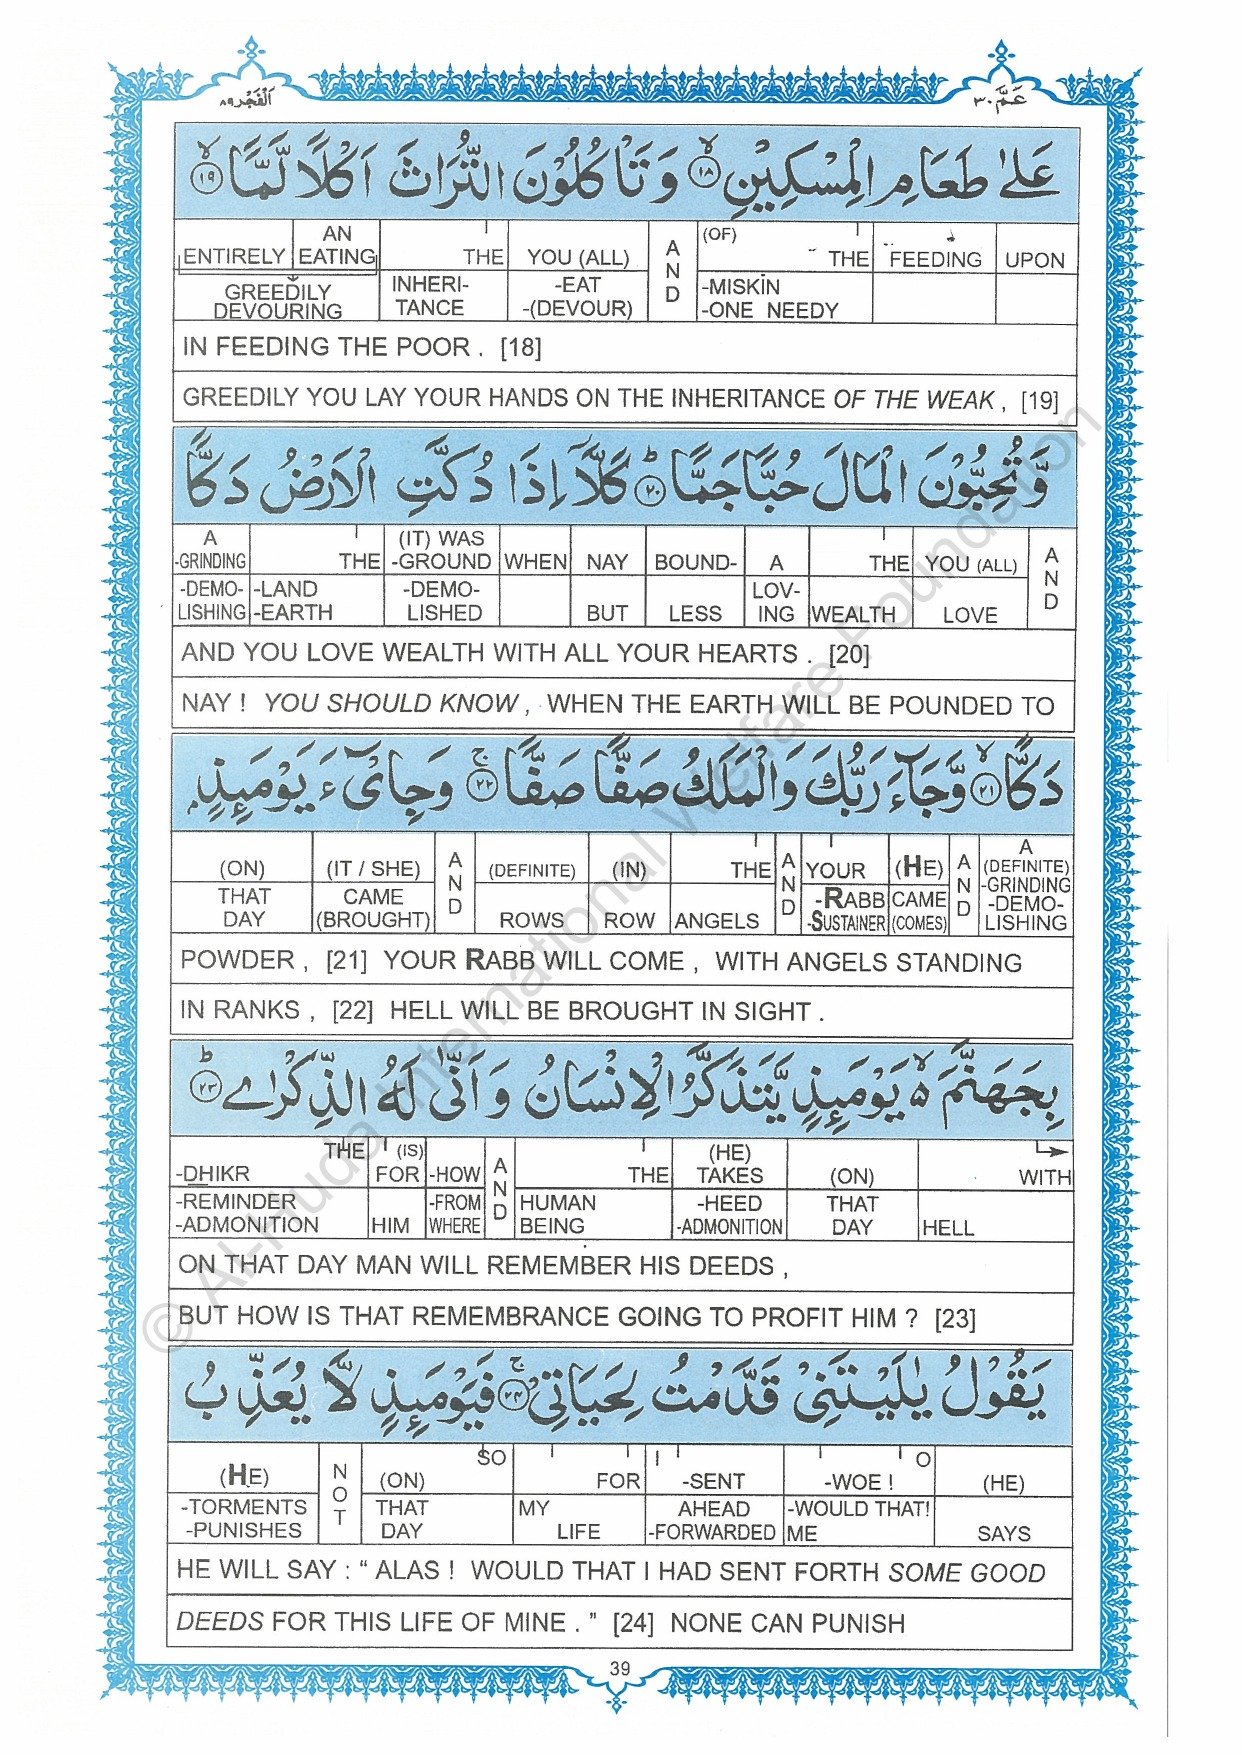 اَلْفَجْر ٨٩ عَمَّ ٣٠
عَلٰى طَعَامِ الْمِسْكِيْنِ ۙ﴿١٨﴾ وَتَاْكُلُوْنَ التُّرَاثَ اَكْلًا لَّمًّا ۙ﴿١٩﴾
ENTIRELY AN EATING THE YOU (ALL) AND (OF) THE FEEDING UPON
GREEDILY DEVOURING INHERI-TANCE -EAT -(DEVOUR) -MISKIN -ONE NEEDY
IN FEEDING THE POOR . [18]
GREEDILY YOU LAY YOUR HANDS ON THE INHERITANCE OF THE WEAK , [19]
وَّتُحِبُّوْنَ الْمَالَ حُبًّا جَمًّا ؕ﴿٢٠﴾ كَلَّاۤ اِذَا دُكَّتِ الْاَرْضُ دَكًّا
A -GRINDING THE (IT) WAS -GROUND WHEN NAY BOUND- A THE YOU (ALL) AND
-DEMO-LISHING -LAND -EARTH -DEMO-LISHED BUT LESS LOV-ING WEALTH LOVE
AND YOU LOVE WEALTH WITH ALL YOUR HEARTS . [20]
NAY ! YOU SHOULD KNOW , WHEN THE EARTH WILL BE POUNDED TO
دَكًّا ۙ﴿٢١﴾ وَّجَآءَ رَبُّكَ وَالْمَلَكُ صَفًّا صَفًّا ۚ﴿٢٢﴾ وَجِایْٓءَ يَوْمَئِذٍۭ
(ON) (IT / SHE) AND (DEFINITE) (IN) THE AND YOUR (HE) AND A (DEFINITE) -GRINDING
THAT DAY CAME (BROUGHT) ROWS ROW ANGELS -RABB -SUSTAINER CAME (COMES) -DEMO-LISHING
POWDER , [21] YOUR RABB WILL COME , WITH ANGELS STANDING
IN RANKS , [22] HELL WILL BE BROUGHT IN SIGHT .
بِجَهَنَّمَ ۙ۬ يَوْمَئِذٍ يَّتَذَكَّرُ الْاِنْسَانُ وَاَنّٰى لَهُ الذِّكْرٰى ؕ﴿٢٣﴾
THE -DHIKR (IS) FOR -HOW AND THE (HE) TAKES (ON) WITH
-REMINDER -ADMONITION HIM -FROM WHERE HUMAN BEING -HEED -ADMONITION THAT DAY HELL
ON THAT DAY MAN WILL REMEMBER HIS DEEDS ,
BUT HOW IS THAT REMEMBRANCE GOING TO PROFIT HIM ? [23]
يَقُوْلُ يٰلَيْتَنِىْ قَدَّمْتُ لِحَيَاتِىْ ۚ﴿٢٤﴾ فَيَوْمَئِذٍ لَّا يُعَذِّبُ
(HE) NOT SO (ON) FOR I -SENT O -WOE ! (HE)
-TORMENTS -PUNISHES THAT DAY MY LIFE AHEAD -FORWARDED -WOULD THAT! ME SAYS
HE WILL SAY : “ ALAS ! WOULD THAT I HAD SENT FORTH SOME GOOD
DEEDS FOR THIS LIFE OF MINE . ” [24] NONE CAN PUNISH
39
© Al-Huda International Welfare Foundation